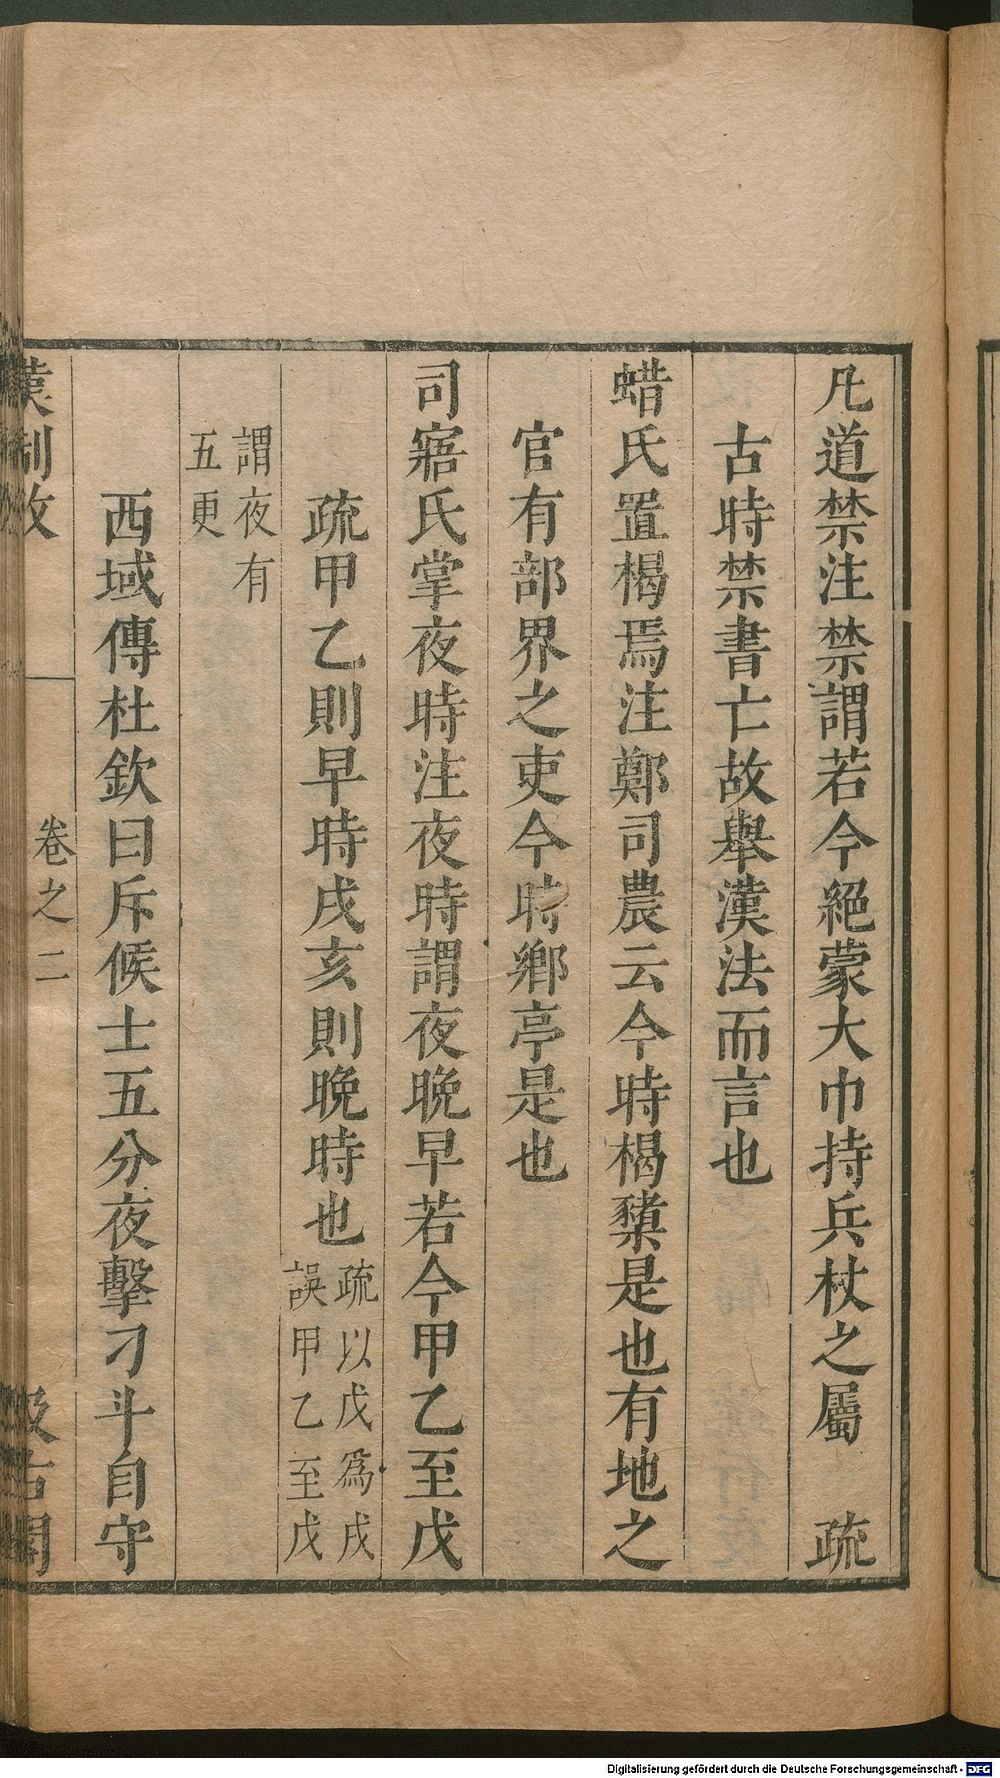 凡道禁注禁謂若今絕蒙大巾持兵杖之屬 疏
古時禁書亡故舉漢法而言也
蜡氏置楬焉注鄭司農云今時楬櫫是也有地之
官有部界之吏今時鄉亭是也
司寤氏掌夜時注夜時謂夜晚早若今甲乙至戊
疏甲乙則早時戌亥則晚時也
疏以戊為戌
誤甲乙至戊
謂夜有
五更
西域傳杜欽曰斥候士五分夜擊刁斗自守
漢制攷
卷之二
汲古閣
Digitalisierung gefördert durch die Deutsche Forschungsgemeinschaft - DFG